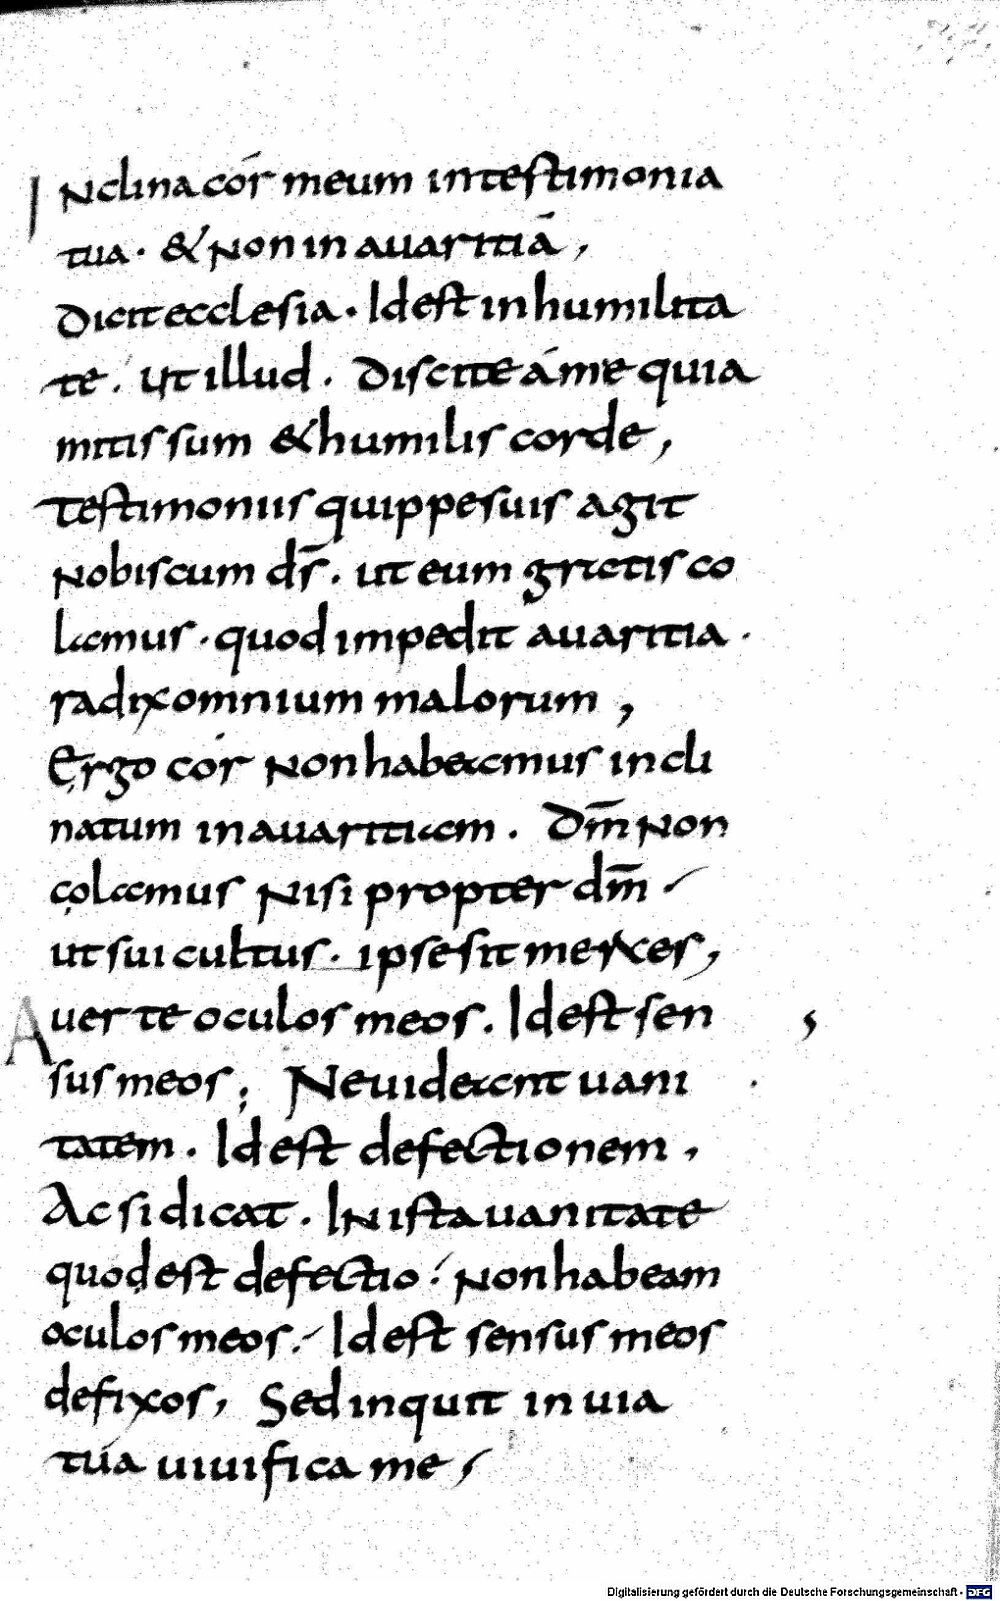 INclina cór meum in testimonia
tua · & Non in auaritiā,
Dicit ecclesia · Id est in humilita
te . ut illud . Discite á me quia
mitis sum & humilis corde,
Testimoniis quippe suis agit
Nobiscum ds̄ . ut eum gratis co
lamus · quod impedit auaritia ·
radix omnium malorum,
Ergo cór Non habeamus incli
natum in auaritiam . Dm̄ Non
colamus Nisi propter dm̄
ut sui cultus . ipse sit merces,
Auerte oculos meos . Id est sen
sus meos ; Ne uideant uani
tatem . Id est defectionem,
Ac si dicat . IN ista uanitate
quod est defectio . Non habeam
oculos meos . Id est sensus meos
defixos, Sed inquit in uia
tua uiuifica me,
Digitalisierung gefördert durch die Deutsche Forschungsgemeinschaft - DFG